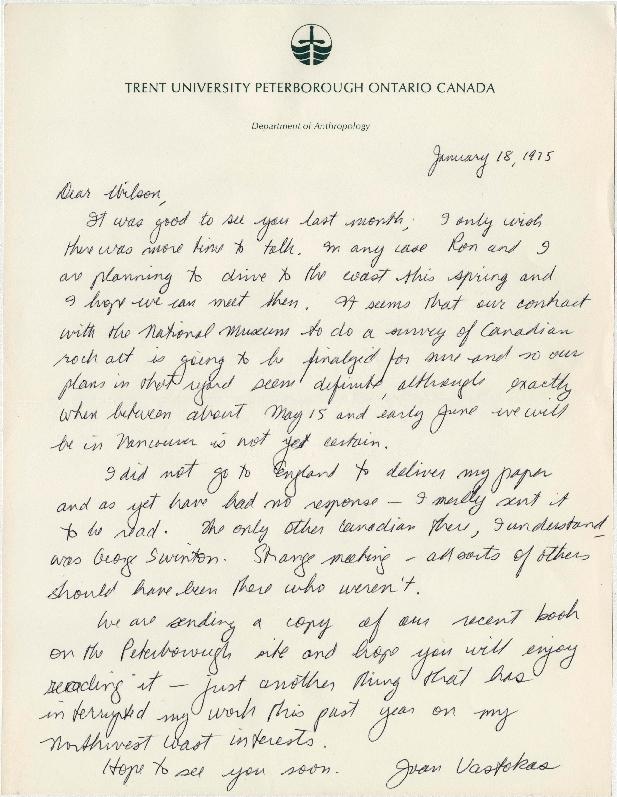 TRENT UNIVERSITY PETERBOROUGH ONTARIO CANADA
Department of Anthropology
January 18, 1975
Dear Wilson,
It was good to see you last month; I only wish
there was more time to talk. In any case Ron and I
are planning to drive to the coast this spring and
I hope we can meet then. It seems that our contract
with the National Museum to do a survey of Canadian
rock art is going to be finalized for sure and so our
plans in that regard seem definite, although exactly
when between about May 15 and early June we will
be in Vancouver is not yet certain.
I did not go to England to deliver my paper
and as yet have had no response – I merely sent it
to be read. The only other Canadian there, I understand
was George Swinton. Strange meeting – all sorts of others
should have been there who weren't.
We are sending a copy of our recent book
on the Peterborough site and hope you will enjoy
reading it – just another thing that has
interrupted my work this past year on my
Northwest Coast interests.
Hope to see you soon. Joan Vastokas